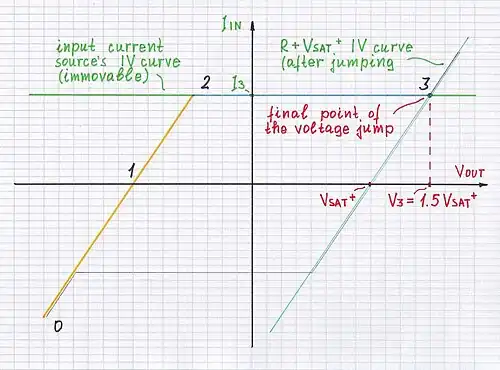 IIN
input current
source's IV curve
(immovable)
R + VSAT+ IV curve
(after jumping
2
I3
3
final point of
the voltage jump
1
VOUT
VSAT+
V3 = 1.5 VSAT+
0